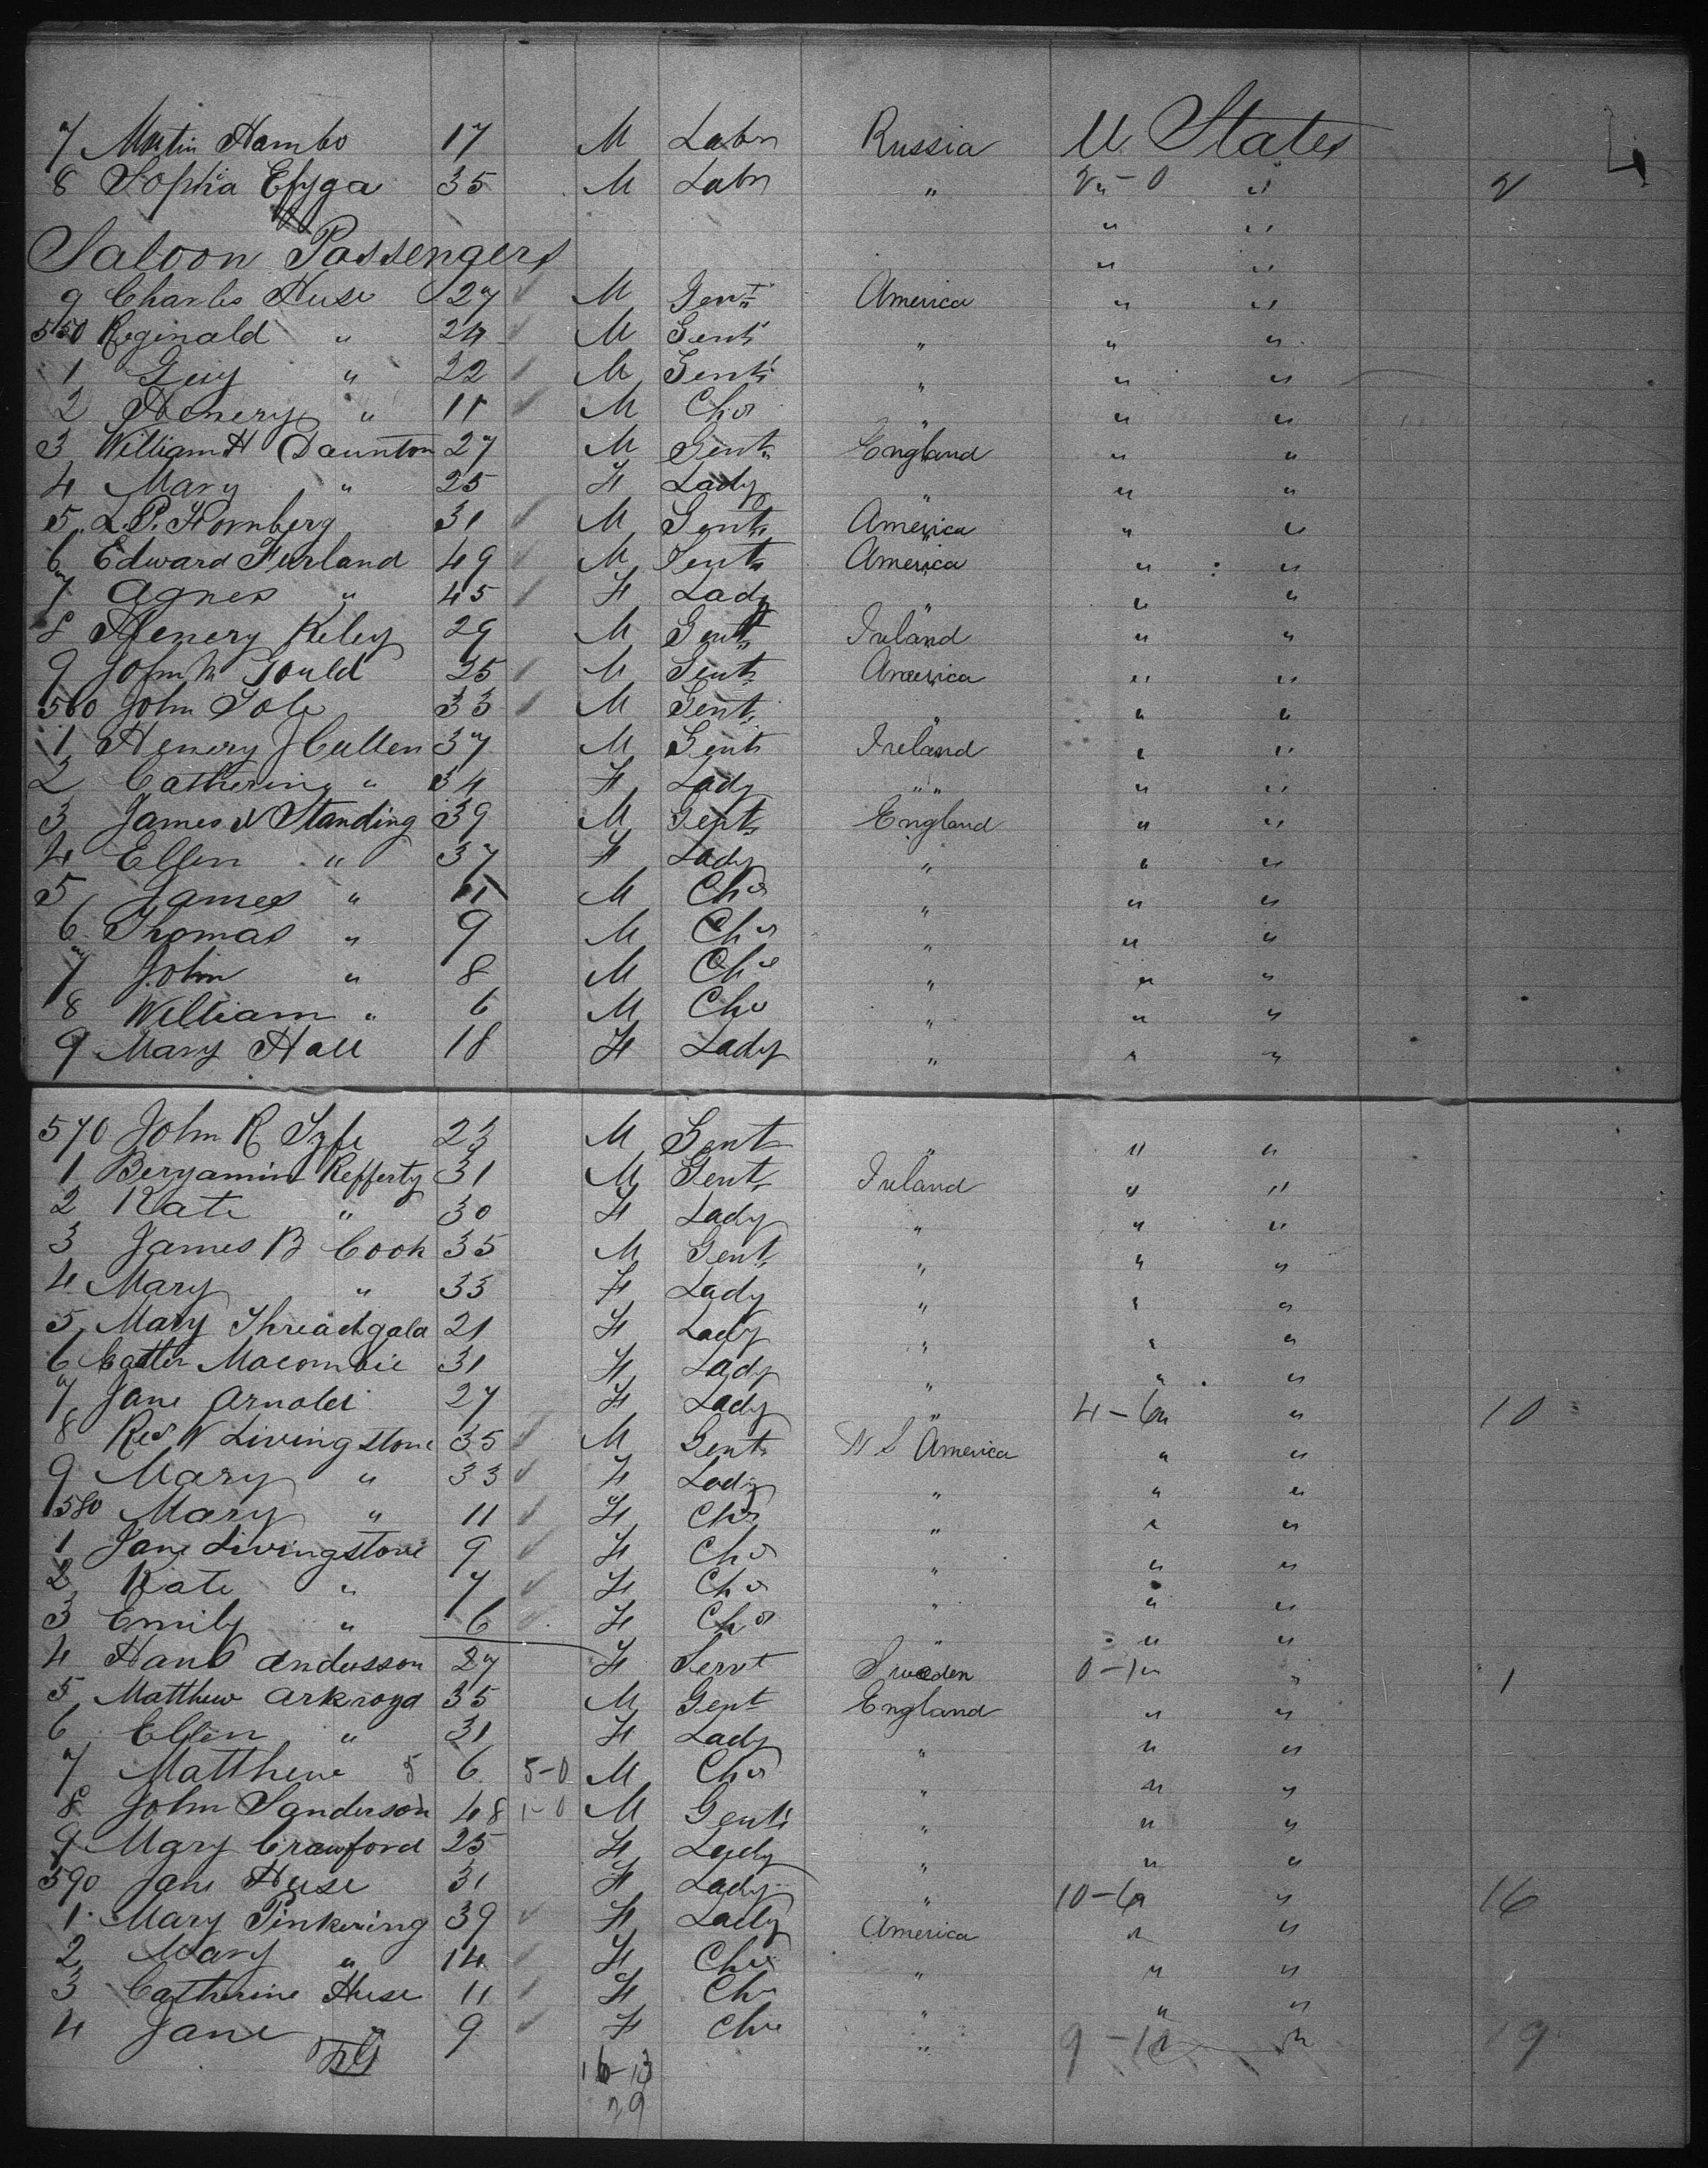 7 Martin Hambo 17 M Labr Russia U States 4
8 Sophia Efyga 35 M Labr " 2-0 " 2
Saloon Passengers " "
9 Charles Huse 27 M Gent America " "
550 Reginald " 24 M Gent " " "
1 Guy " 22 M Gent " " "
2 Henery " 11 M Chd " " "
3 William H Daunton 27 M Gent England " "
4 Mary " 25 F Lady " " "
5 L.P. Hornberg 31 M Gent America " "
6 Edward Furland 49 M Gent America " "
7 Agnes " 45 F Lady " " "
8 Henery Kiley 29 M Gent Ireland " "
9 John M Gould 25 M Gent America " "
560 John Tole 33 M Gent " " "
1 Henery J Cullen 37 M Gent Ireland " "
2 Cathering " 34 F Lady " " "
3 James N Standing 39 M Gent England " "
4 Ellen " 37 F Lady " " "
5 James " 11 M Chd " " "
6 Thomas " 9 M Chd " " "
7 John " 8 M Chd " " "
8 William " 6 M Chd " " "
9 Mary Hall 18 F Lady " " "
570 John R Syfe 23 M Gent " " "
1 Benyamin Refferty 31 M Gent Ireland " "
2 Kate " 30 F Lady " " "
3 James B Cook 35 M Gent " " "
4 Mary " 33 F Lady " " "
5 Mary Threadgala 21 F Lady " " "
6 Macombie 31 F Lady " " "
7 Jane Arnold 27 F Lady " 4-6 " 10
8 Rev W Livingstone 35 M Gent N S America " "
9 Mary " 33 F Lady " " "
580 Mary " 11 F Chd " " "
1 Jane Livingstone 9 F Chd " " "
2 Kate " 7 F Chd " " "
3 Emily " 6 F Chd " " "
4 Hans Andersson 27 F Servt Sweden 0-1 " 1
5 Matthew Arkroyd 35 M Gent England " "
6 Ellen " 31 F Lady " " "
7 Matthew 5 6 5-0 M Chd " " "
8 John Sanderson 48 1-0 M Gent " " "
9 Mary Crawford 25 F Lady " " "
590 Jane Huse 31 F Lady " 10-6 " 16
1 Mary Pinkering 39 F Lady America " "
2 Mary " 14 F Chd " " "
3 Catherine Huse 11 F Chd " " "
4 Jane " 9 F Chd " 9-10 " 19
16-13
29